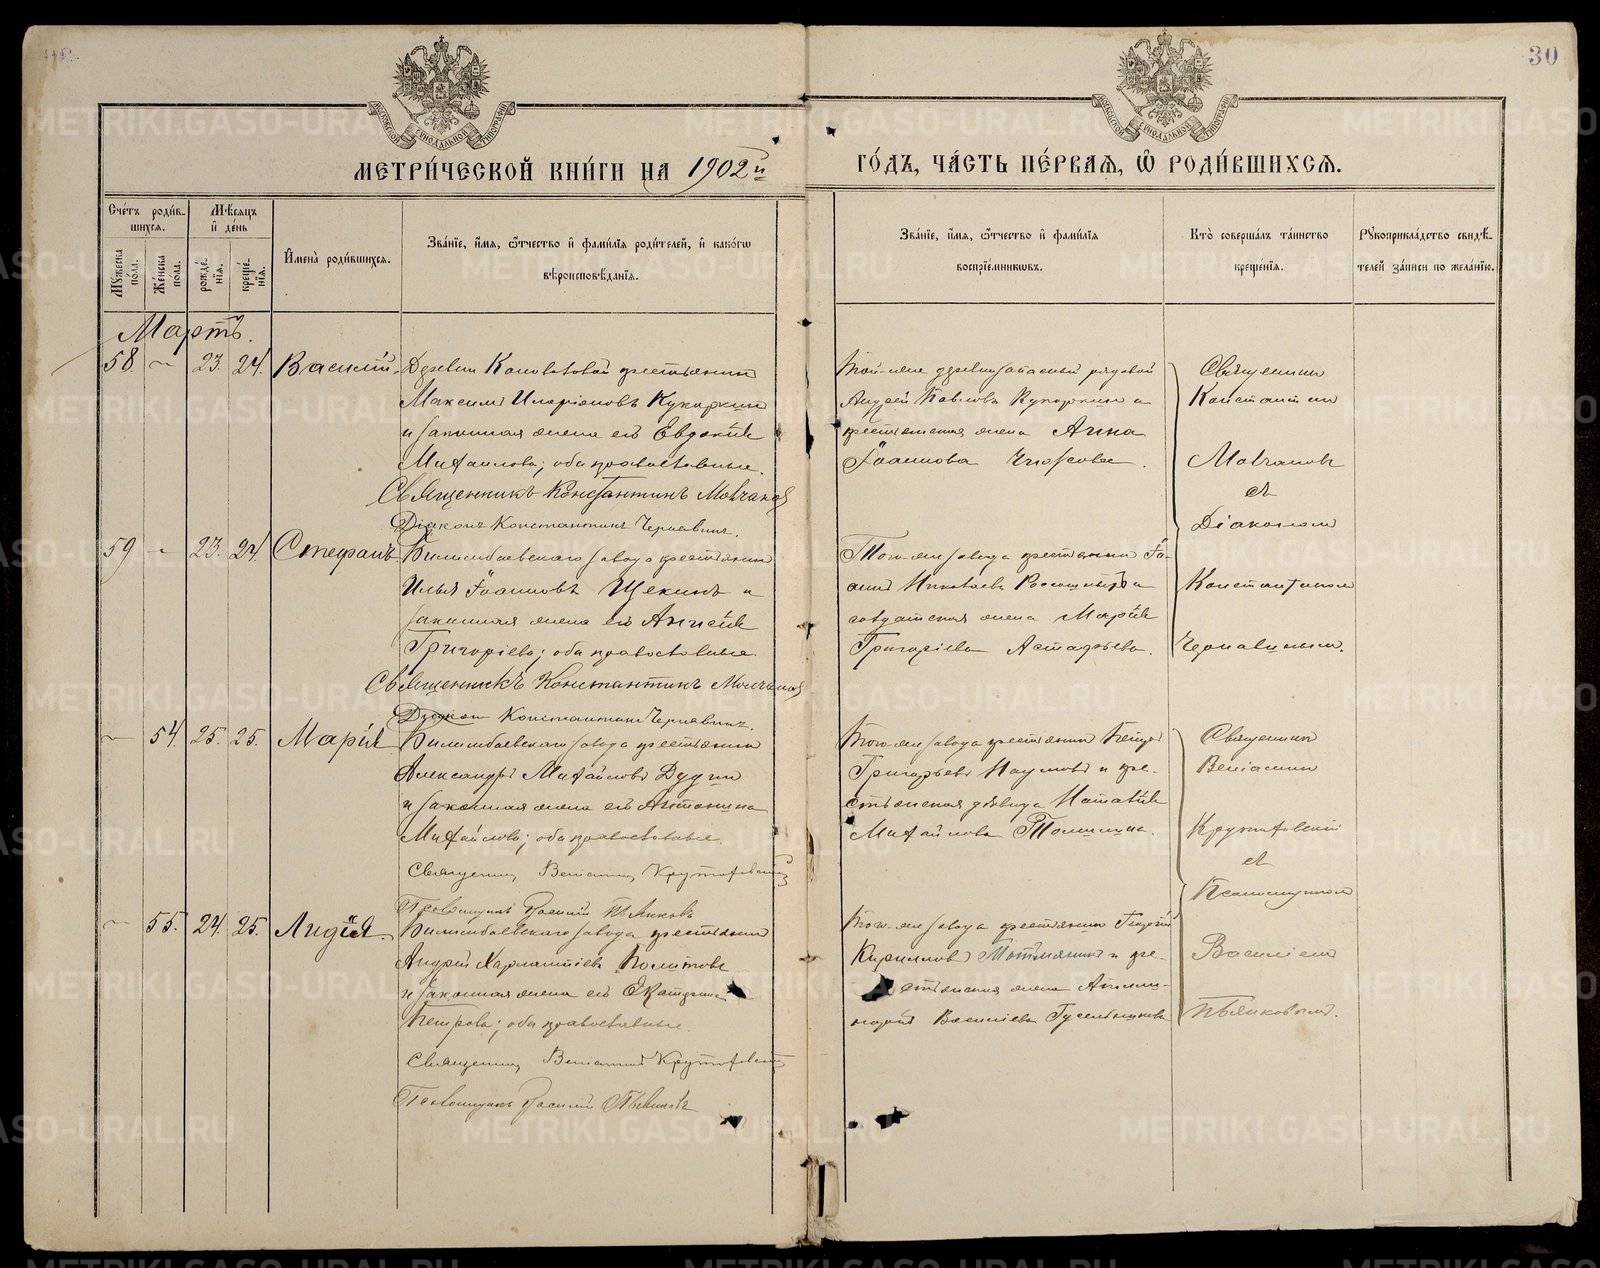 30
МОСКОВСКОЙ СѴНОДАЛЬНОЙ ТИПОГРАФІИ
МОСКОВСКОЙ СѴНОДАЛЬНОЙ ТИПОГРАФІИ
МЕТРИ́ЧЕСКОЙ КНИ́ГИ НА 1902й
ГО́ДЪ, ЧА́СТЬ ПЕ́РВАѦ, Ѡ҆ РОДИ́ВШИХСѦ.
Сче́тъ роди́в-
шихсѧ.
Мꙋ́жеска по́ла.
Же́нска по́ла.
Мѣ́сѧцъ
и҆ де́нь
рожде́нїѧ.
креще́нїѧ.
И҆мена̀ роди́вшихсѧ.
Зва́нїе, и҆́мѧ, ѻ҆́тчество и҆ фами́лїѧ роди́телей, и҆ како́гѡ
вѣроисповѣ́данїѧ.
Зва́нїе, и҆́мѧ, ѻ҆́тчество и҆ фами́лїѧ
воспрїе́мникѡвъ.
Кто̀ соверша́лъ та́инство
креще́нїѧ.
Рꙋкоприкла́дство свидѣ́-
телей за́писи по жела́нїю.
Мартъ.
58. — 23. 24. Василій.
Деревни крестьянинъ
Максимъ Иларіоновъ Кукаркинъ
и законная жена его Евдокія
Михаилова; оба православные.
Священникъ Константинъ Молчановъ
Діаконъ Константинъ Чернавинъ.
Той-же деревни запасный рядовой
Андрей Павловъ Кукаркинъ и
крестьянская жена Анна
Іоаннова
Священникъ
Константинъ
Молчановъ
съ
Діакономъ
Константиномъ
Чернавинымъ.
59 — 23. 24. Стефанъ.
Билимбаевскаго завода крестьянинъ
Илья Іоанновъ Щекинъ и
законная жена его Анисія
Григоріева; оба православные.
Священникъ Константинъ Молчановъ
Діаконъ Константинъ Чернавинъ.
Того-же завода крестьянинъ Іо-
аннъ Николаевъ и
солдатская жена Марія
Григоріева Астафьева.
— 54. 25. 25. Марія
Билимбаевскаго завода крестьянинъ
Александръ Михайловъ Дудинъ
и законная жена его Антонина
Михайлова; оба православные.
Священникъ Веніаминъ
Псаломщикъ Василій Пьянковъ
Того-же завода крестьянинъ Петръ
Григорьевъ Наумовъ и кре-
стьянская дѣвица Наталія
Михайлова
Священникъ
Веніаминъ
съ
Псаломщикомъ
Василіемъ
Пьянковымъ.
— 55. 24. 25. Лидія.
Билимбаевскаго завода крестьянинъ
Андрей Харлампіевъ
и законная жена его Екатерина
Петрова; оба православные.
Священникъ Веніаминъ
Псаломщикъ Василій Пьянковъ
Того-же завода крестьянинъ Георгій
Кирилловъ и кре-
стьянская жена Аполли-
нарія Василіева Гусельникова
METRIKI.GASO-URAL.RU